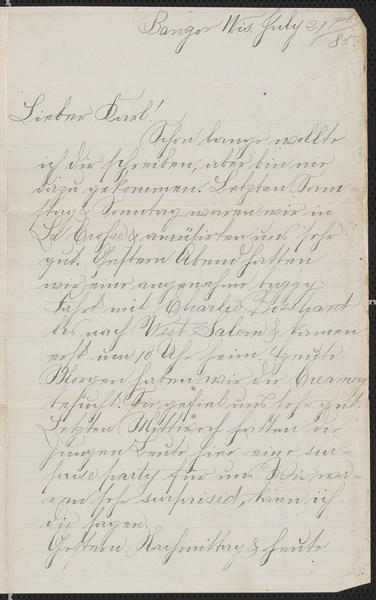 Bangor Wis. July 21st
/85.
Lieber Karl!
Schon lange wollte
ich dir schreiben, aber bin nie
dazu gekommen. Letzten Sam-
stag & Sonntag waren wir in
La Crosse & amüsirten uns sehr
gut. Gestern Abend hatten
wir eine angenehme buggy
Fahrt mit Charlie Bosshard
bis nach West-Salem & kamen
erst um 10 Uhr heim. Heute
Morgen haben wir die Creamery
besucht. Sie gefiel uns sehr gut.
Letzten Mittwoch hatten die
jungen Leute hier eine sur-
prise party für uns. Wir wa-
ren sehr surprised, kann ich
dir sagen.
Gestern Nachmittag & heute